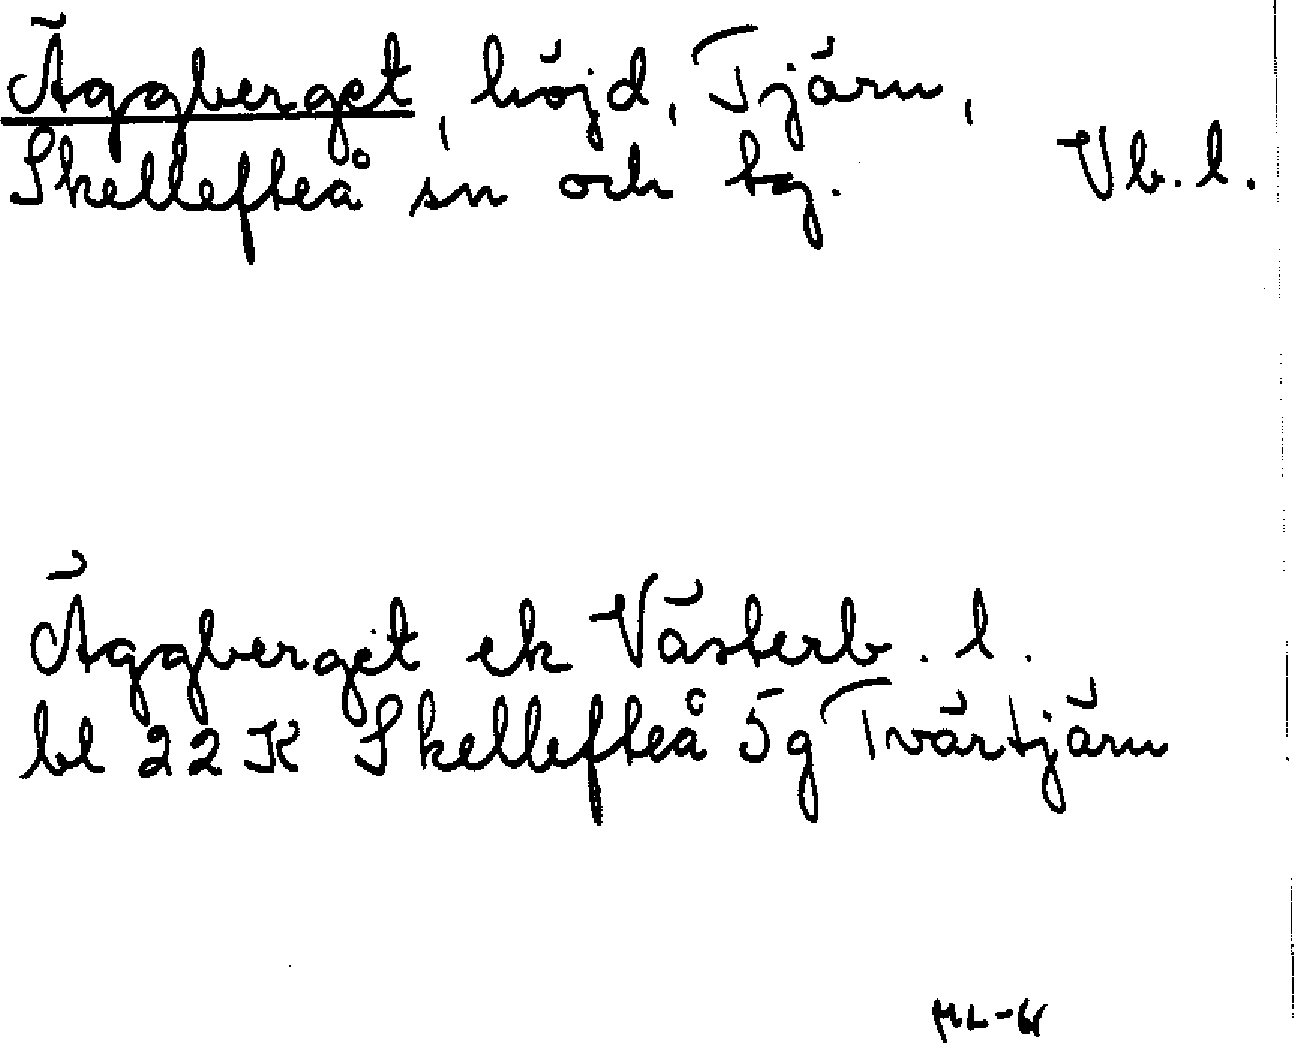 Äggberget, höjd, Tjärn,
Skellefteå sn och tg. Vb. l.
Äggberget ek Västerb. l.
bl 22 K Skellefteå 5g Tvärtjärn